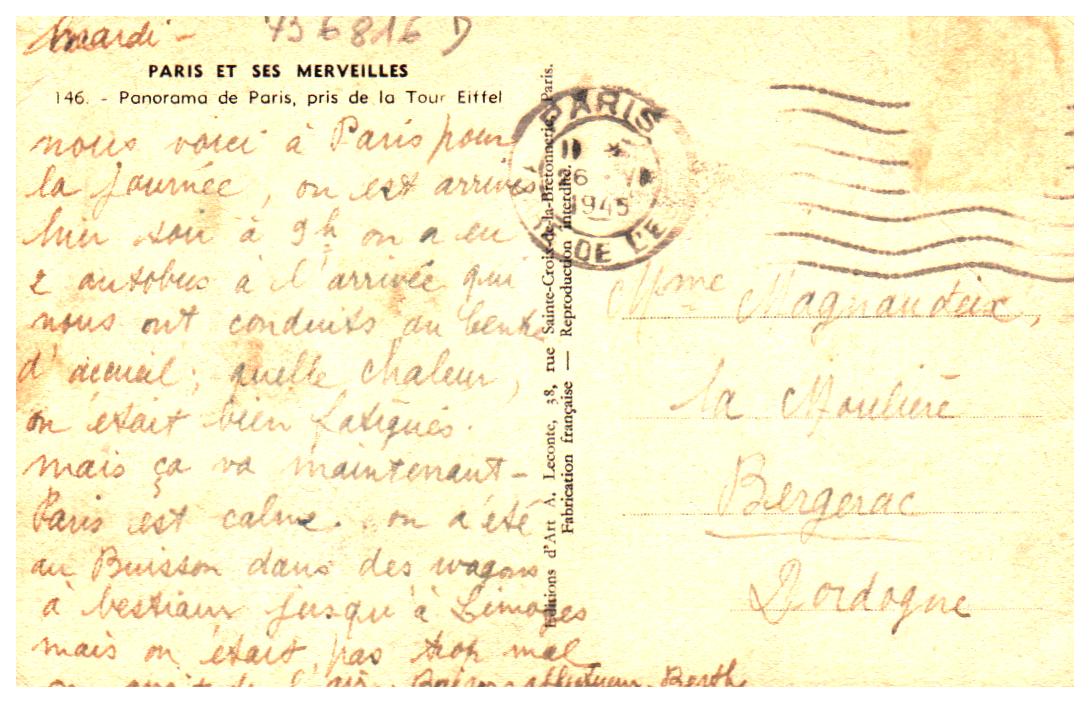 mardi -
736816 D
PARIS ET SES MERVEILLES
146. - Panorama de Paris, pris de la Tour Eiffel
nous voici à Paris pour
la journée, on est arrivés
hier soir à 9h on a eu
2 autobus à l'arrivée qui
nous ont conduits au Centre
d'accueil; quelle chaleur,
on était bien fatigués.
mais ça va maintenant -
Paris est calme. on a été
au Buisson dans des wagons
à bestiaux jusqu'à Limoges
mais on était pas trop mal
on avait de l'air. Baisers affectueux. Berthe
Editions d'Art A. Leconte, 38, rue Sainte-Croix-de-la-Bretonnerie, Paris.
Fabrication française — Reproduction interdite.
PARIS
1945
DE L'E
Mme Magnaudeix,
la Moulière
Bergerac
Dordogne